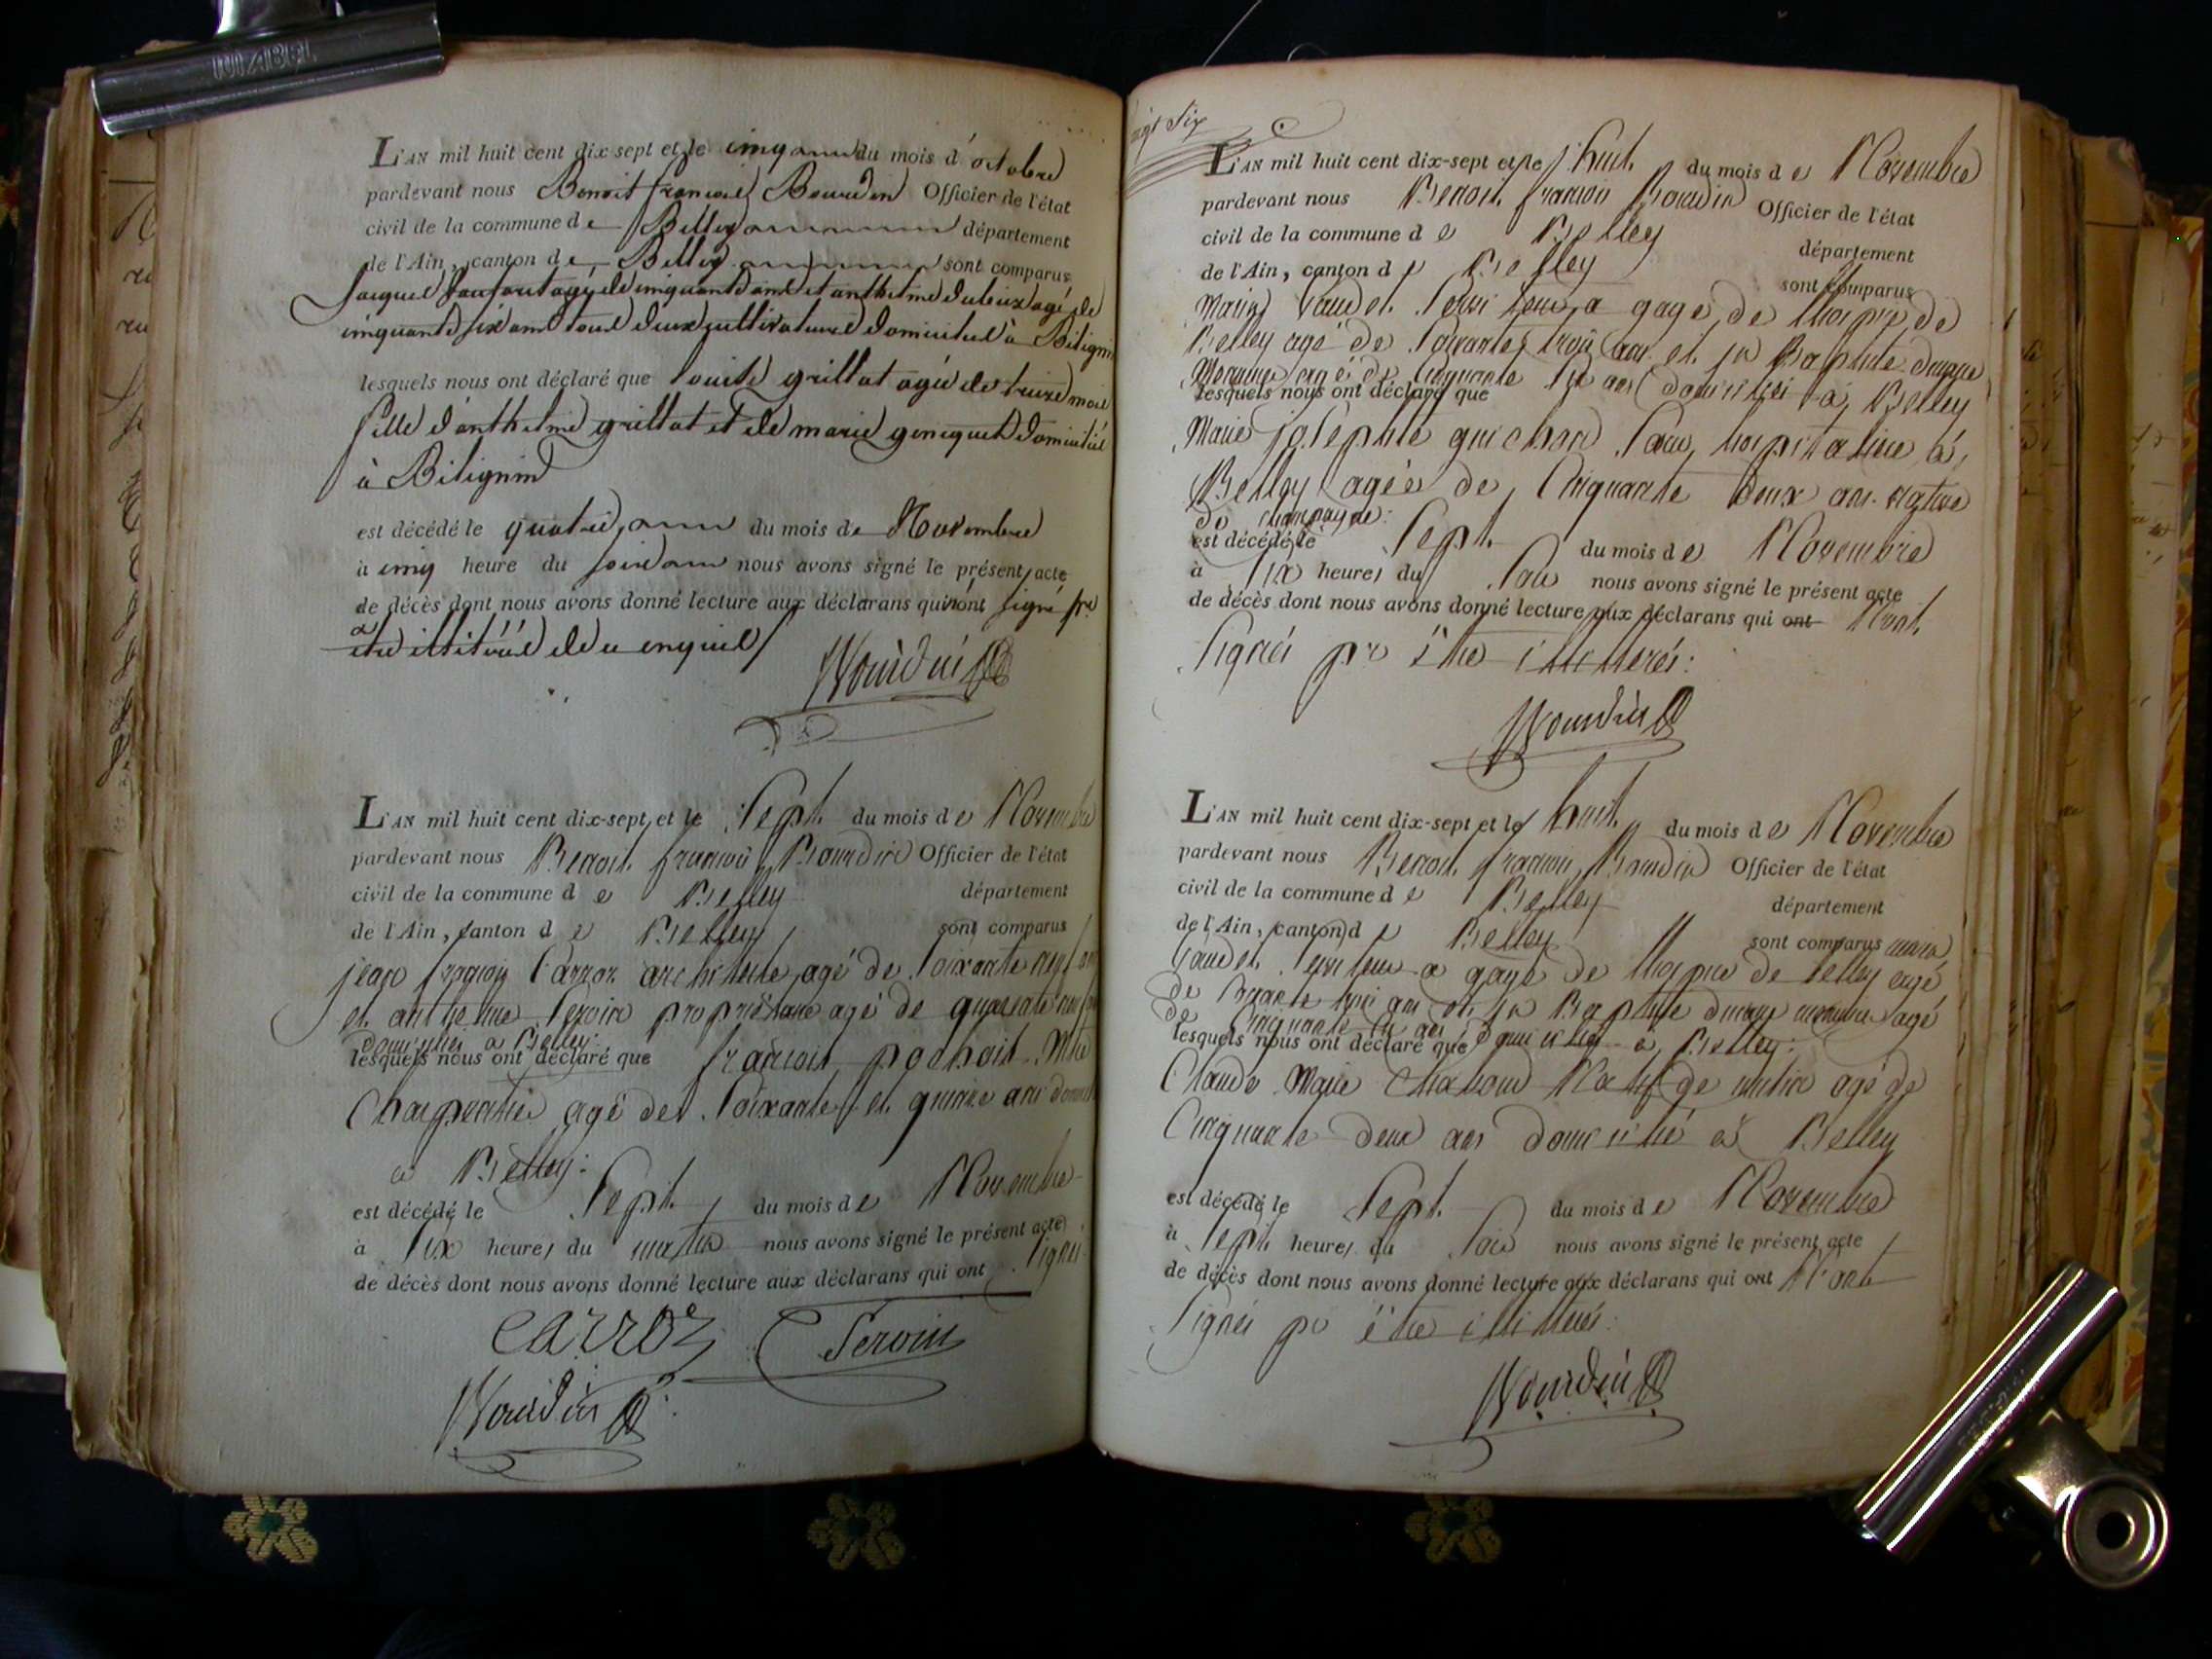 L'AN mil huit cent dix-sept et le cinq du mois d'octobre
pardevant nous Benoit françois Bourdin Officier de l'état
civil de la commune de Belley département
de l'Ain, canton de Belley sont comparus
Jacques agé de cinquante ans et anthelme dubeux agé de
cinquante six ans tous deux cultivateurs domiciliés à Bilignin
lesquels nous ont déclaré que Louise grillat agée de treize mois
fille d'anthelme grillat et de marie geniquet domiciliés
à Bilignin
est décédé le quatre du mois de Novembre
à cinq heure du soir nous avons signé le présent acte
de décès dont nous avons donné lecture aux déclarans qui n'ont signé pr
illitérés de ce enquis
Bourdin
L'AN mil huit cent dix-sept et le Sept du mois de Novembre
pardevant nous Benoit françois Bourdin Officier de l'état
civil de la commune de Belley département
de l'Ain, canton de Belley sont comparus
jean françois Carroz architecte agé de Soixante neuf ans
et anthelme Servin propriétaire agé de quarante
domiciliés a Belley:
lesquels nous ont déclaré que françois pochoit Mtre
Charpentier agé de Soixante et quinze ans
a Belley:
est décédé le Sept du mois de Novembre
à Six heures du matin nous avons signé le présent acte
de décès dont nous avons donné lecture aux déclarans qui ont Signés
Carroz Servin
Bourdin
Six
L'AN mil huit cent dix-sept et le huit du mois de Novembre
pardevant nous Benoit françois Bourdin Officier de l'état
civil de la commune de Belley département
de l'Ain, canton de Belley sont comparus
Marin Vaudet Serviteur a gage de lhospice de
Belley agé de Soixante trois ans et jn Baptiste
Menuisier agé de Cinquante Six ans domiciliés à Belley
lesquels nous ont déclaré que
Marie josephte guichard Sœur hospitalière à
Belley agée de Cinquante deux ans native
de Champagne:
est décédé le Sept du mois de Novembre
à Six heures du Soir nous avons signé le présent acte
de décès dont nous avons donné lecture aux déclarans qui ont N'ont
Signés pr être illitterés:
Bourdin
L'AN mil huit cent dix-sept et le huit du mois de Novembre
pardevant nous Benoit françois Bourdin Officier de l'état
civil de la commune de Belley département
de l'Ain, canton de Belley sont comparus marin
Vaudet Serviteur a gage de lhospice de belley agé
de Soixante trois ans et jn Baptiste menuisier agé
de Cinquante Six ans domiciliés a Belley:
lesquels nous ont déclaré que
Claude Marie Chaboud Natif de agé de
Cinquante deux ans domicilié à Belley
est décédé le Sept du mois de Novembre
à Sept heures du Soir nous avons signé le présent acte
de décès dont nous avons donné lecture aux déclarans qui ont N'ont
Signés pr être illitterés:
Bourdin